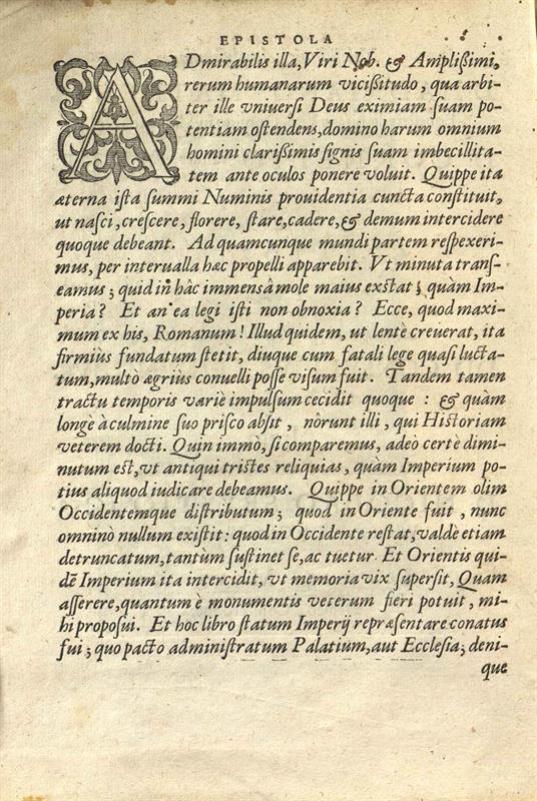 EPISTOLA
ADmirabilis illa, Viri Nob. & Amplißimi,
rerum humanarum vicißitudo, qua arbi-
ter ille vniuersi Deus eximiam ſuam po-
tentiam oſtendens, domino harum omnium
homini clarißimis ſignis ſuam imbecillita-
tem ante oculos ponere voluit. Quippe ita
æterna iſta ſummi Numinis prouidentia cuncta conſtituit,
ut naſci, creſcere, florere, ſtare, cadere, & demum intercidere
quoque debeant. Ad quamcunque mundi partem reſpexeri-
mus, per interualla hæc propelli apparebit. Vt minuta tranſ-
eamus; quid in hâc immensâ mole maius exſtat, quàm Im-
peria? Et an ea legi iſti non obnoxia? Ecce, quod maxi-
mum ex his, Romanum! Illud quidem, ut lentè creuerat, ita
firmiùs fundatum ſtetit, diuque cum fatali lege quaſi lucta-
tum, multò ægriùs conuelli poſſe viſum fuit. Tandem tamen
tractu temporis variè impulſum cecidit quoque: & quàm
longè à culmine ſuo priſco abſit, nôrunt illi, qui Hiſtoriam
veterem docti. Quin immò, ſi comparemus, adeò certè dimi-
nutum eſt, vt antiqui triſtes reliquias, quàm Imperium po-
tius aliquod iudicare debeamus. Quippe in Orientem olim
Occidentemque diſtributum; quod in Oriente fuit, nunc
omninò nullum exiſtit: quod in Occidente reſtat, valdè etiam
detruncatum, tantùm ſuſtinet ſe, ac tuetur. Et Orientis qui-
dē Imperium ita intercidit, vt memoria vix ſuperſit, Quam
aſſerere, quantum è monumentis veterum fieri potuit, mi-
hi propoſui. Et hoc libro ſtatum Imperij repræſentare conatus
fui; quo pacto adminiſtratum Palatium, aut Eccleſia; deni-
que